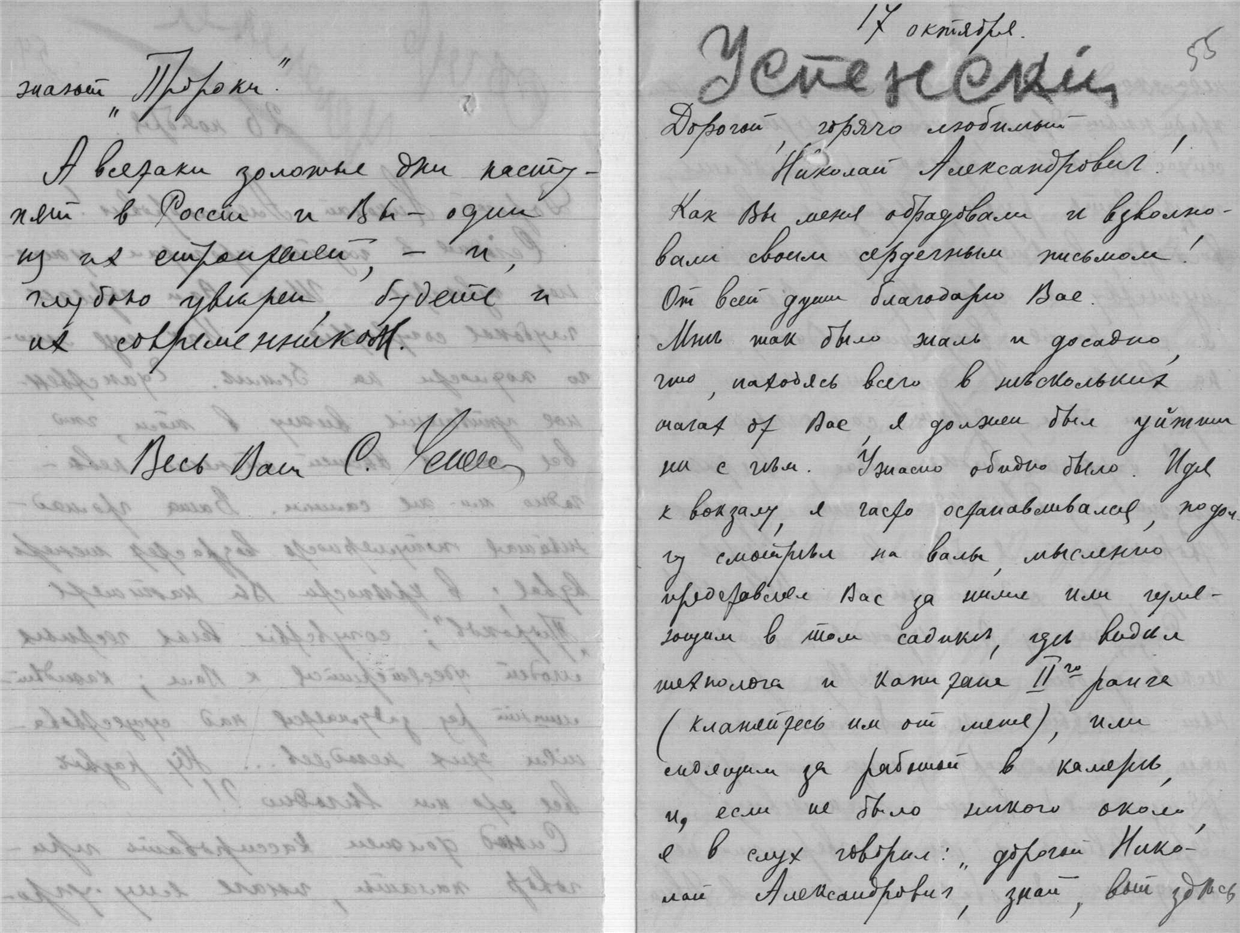 знают „Пророки“.
А всетаки золотые дни насту-
пят в России и Вы – один
из их строителей, – и,
глубоко уверен, будете и
их современником.
Весь Ваш С.
17 октября.
55
Успенскій
Дорогой, горячо любимый
Николай Александрович!
Как Вы меня обрадовали и взволно-
вали своим сердечным письмом!
От всей души благодарю Вас.
Мнѣ так было жаль и досадно,
что, находясь всего в нѣскольких
шагах от Вас, я должен был уйти
ни с чѣм. Ужасно обидно было. Идя
к вокзалу, я часто останавливался, подол-
гу смотрѣл на валы, мысленно
представлял Вас за ними или гуля-
ющим в том садикѣ, гдѣ видѣл
технолога и капитана II го ранга
(кланяйтесь им от меня), или
сидящим за работой в камерѣ,
и, если не было никого около,
я в слух говорил: „дорогой Нико-
лай Александрович, знай, вот здѣсь